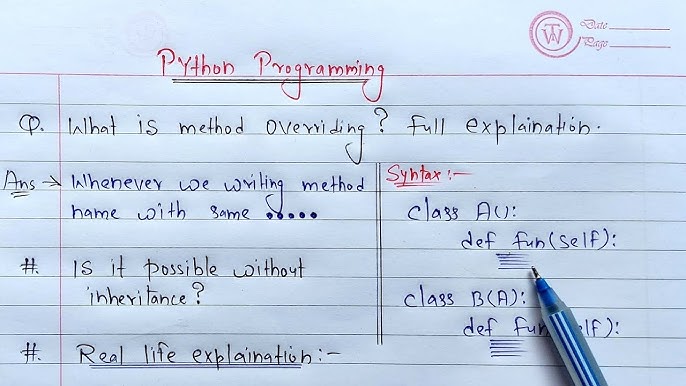 TW
Date
Page
Python Programming
Q. What is method overriding? Full explaination.
Ans → Whenever we writing method
name with same .....
#. Is it possible without
inheritance?
#. Real life explaination:-
Syntax:-
class A():
def fun(self):
class B(A):
def fun(self):